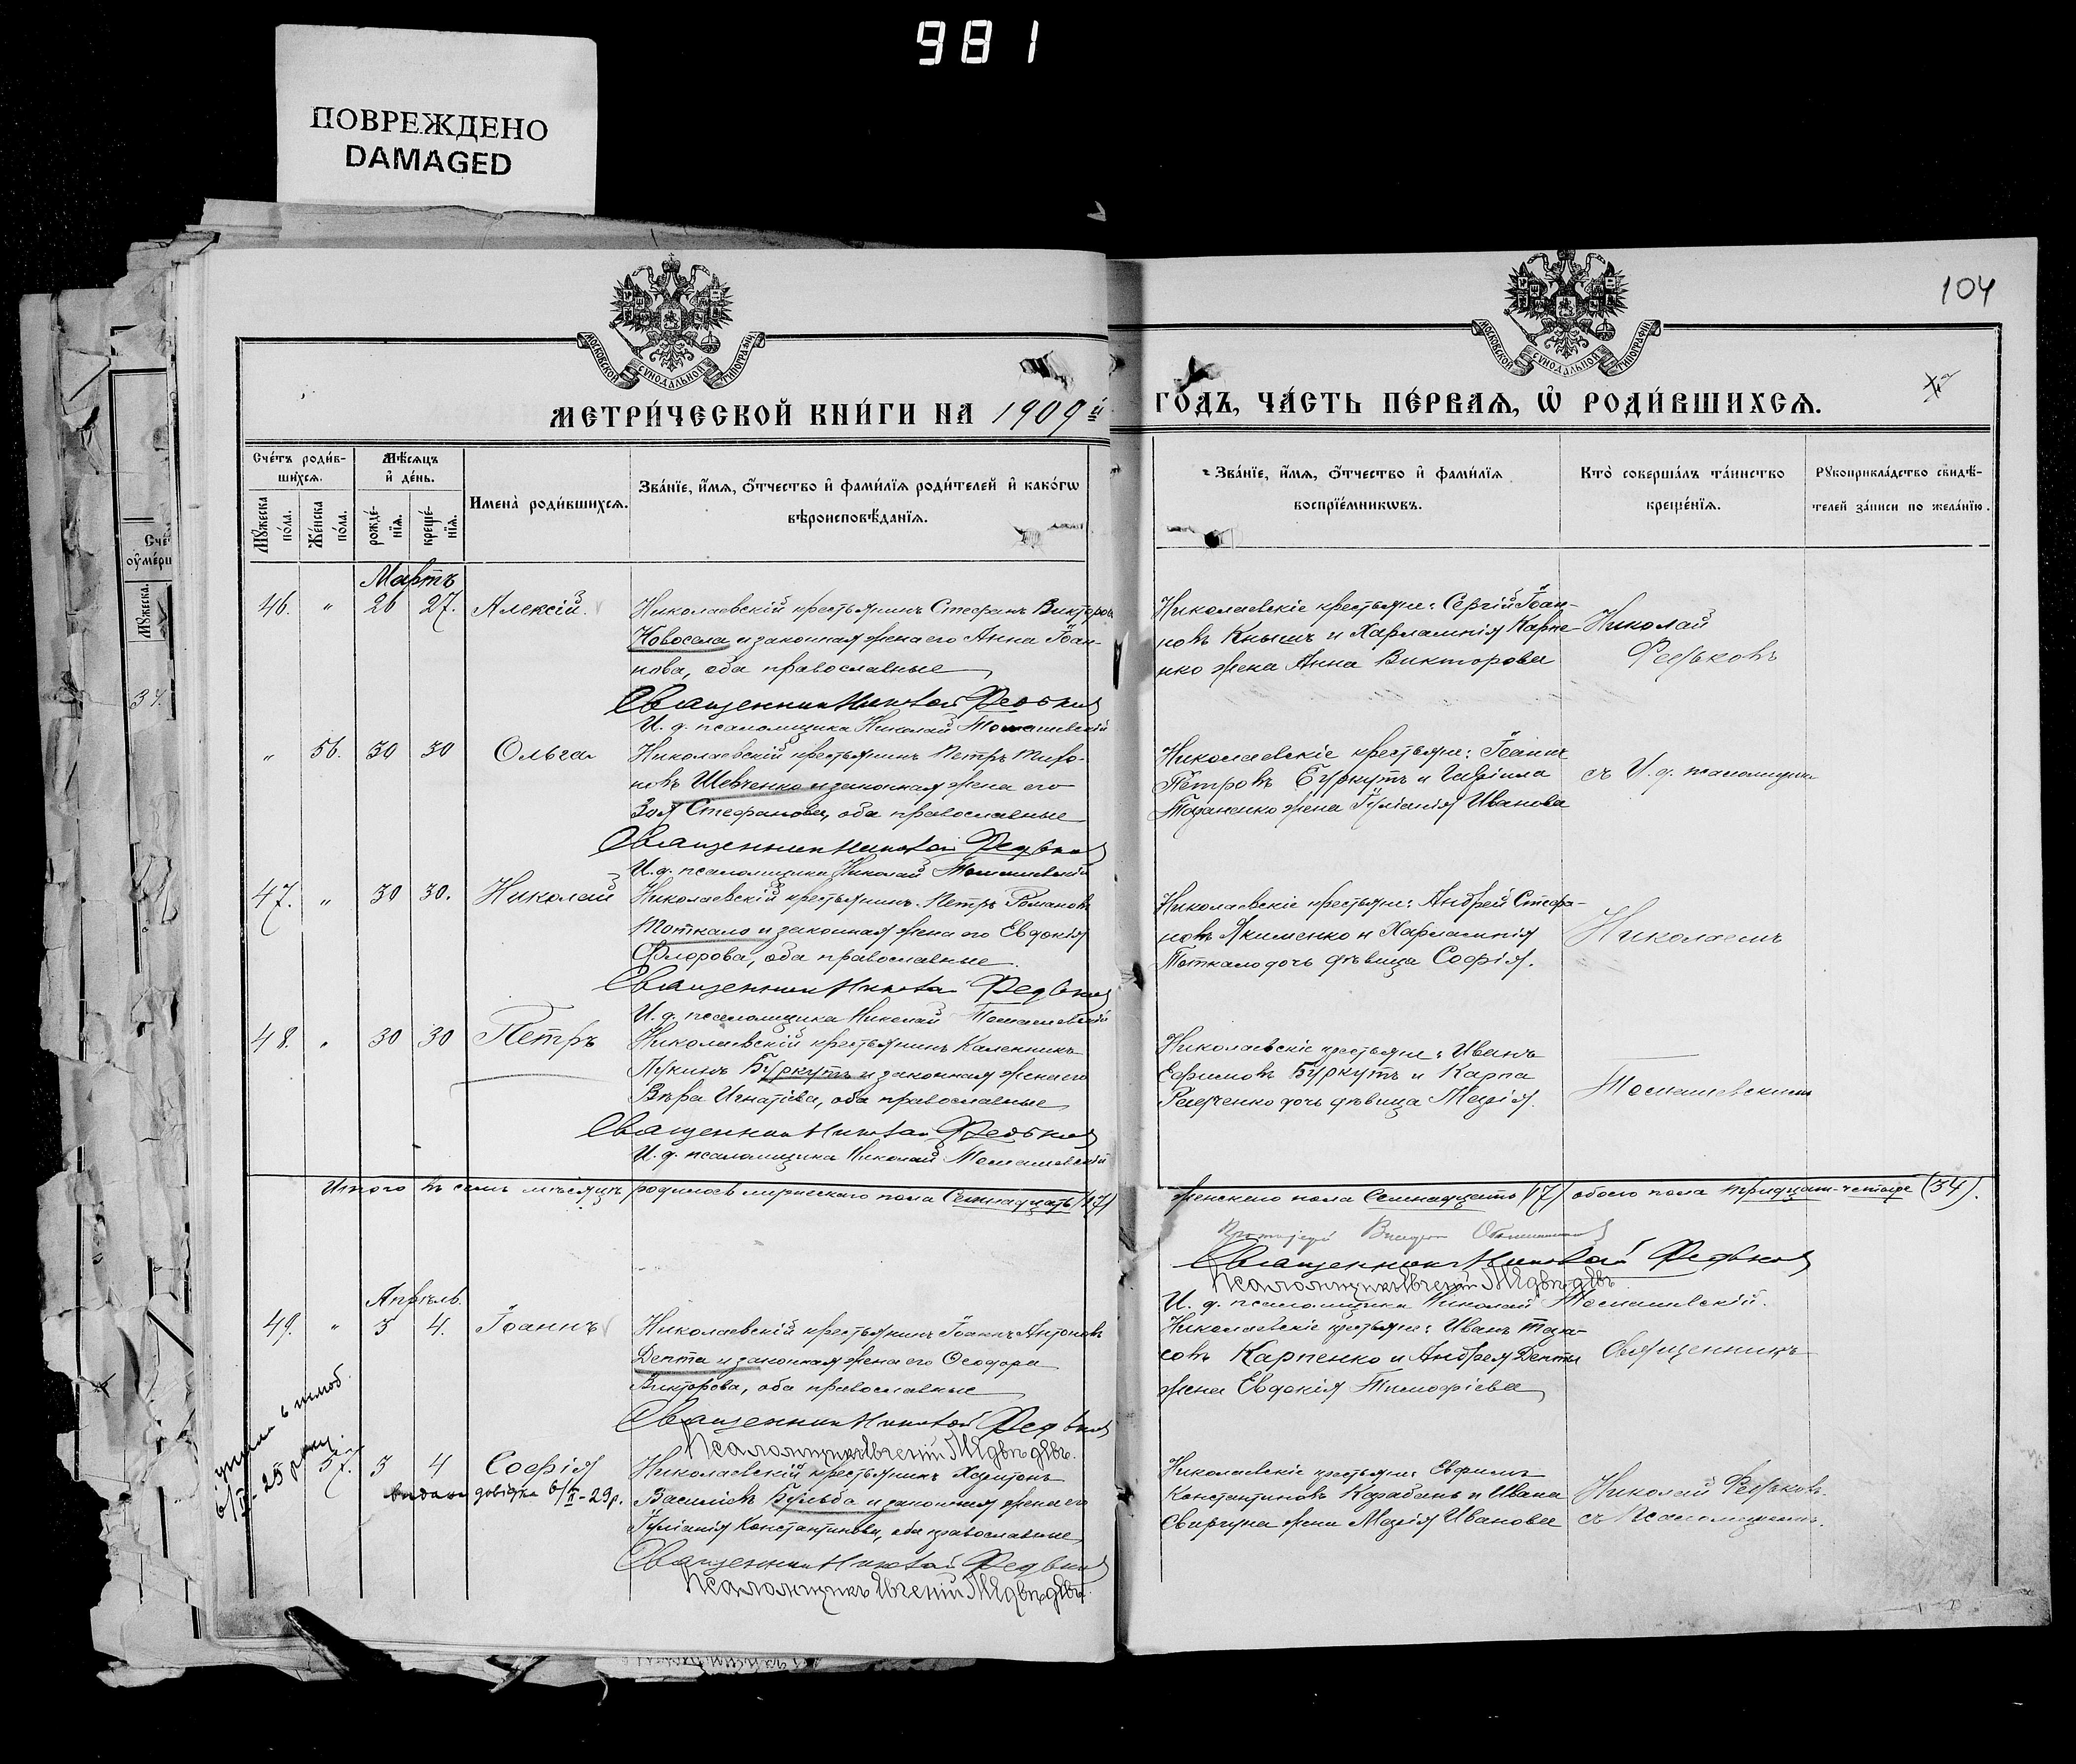 981
ПОВРЕЖДЕНО
DAMAGED
104
МОСКОВСКОЙ СУНОДАЛЬНОЙ ТИПОГРАФІИ
МОСКОВСКОЙ СУНОДАЛЬНОЙ ТИПОГРАФІИ
МЕТРИ́ЧЕСКОЙ КНИ́ГИ НА 1909й
ГО́ДЪ, ЧА́СТЬ ПЕ́РВАѦ, Ѡ҆ РОДИ́ВШИХСѦ.
Сче́тъ роди́в-
шихсѧ.
Мѣ́сѧцъ
и҆ де́нь.
Мꙋ́жеска
по́ла.
Же́нска
по́ла.
рожде́-
нїѧ.
креще́-
нїѧ.
Имена̀ роди́вшихсѧ.
Зва́нїе, и҆́мѧ, ѻ҆́тчество и҆ фами́лїѧ роди́телей и҆ како́гѡ
вѣроисповѣ́данїѧ.
Зва́нїе, и҆́мѧ, ѻ҆́тчество и҆ фами́лїѧ
воспрїе́мникѡвъ.
Кто̀ соверша́лъ та́инство
креще́нїѧ.
Рꙋкоприкла́дство свидѣ́-
телей за́писи по жела́нїю.
Сче́
оу҆ме́рш
Мꙋ́жеска.
37.
Мартъ
46. " 26 27. Алексій.
Николаевскій крестьянинъ Стефанъ Викторов
Новосела и законная жена его Анна Іоан-
нова, оба православные
Священник Николай Федьков
И. д. псаломщика Николай Томашевскій
Николаевскіе крестьяне: Сергій Іоан-
новъ Кнышъ и Харлампія Карпе-
нко жена Анна Викторова
Николай
Федьковъ
" 56. 30 30 Ольга
Николаевскій крестьянинъ Петръ Миро-
новъ Шевченко и законная жена его
Зоя Стефанова, оба православные
Священник Николай Федьков
И. д. псаломщика Николай Томашевскій
Николаевскіе крестьяне: Іоаннъ
Петровъ Буркутъ и Гавріила
жена Іуліанія Иванова
съ И. д. псаломщика
47. " 30 30. Николай
Николаевскій крестьянинъ Петръ Романовъ
Моткало и законная жена его Евдокія
Флорова, оба православные.
Священник Николай Федьков
И. д. псаломщика Николай Томашевскій
Николаевскіе крестьяне: Андрей Стефа-
новъ Якименко и Харлампія
Моткало дочь дѣвица Софія.
Николаемъ
48. " 30 30 Петръ
Николаевскій крестьянинъ Каленикъ
Лукинъ Буркутъ и законная жена его
Вѣра Игнатіева, оба православные
Священник Николай Федьков
И. д. псаломщика Николай Томашевскій
Николаевскіе крестьяне: Иванъ
Ефимовъ Буркутъ и Карпа
дочь дѣвица Марія.
Томашевскимъ
Итого въ семъ мѣсяцѣ родилось мужескаго пола Семнадцать (17)
женскаго пола Семнадцать (17) обоего пола тридцать-четыре (34).
Священникъ Николай Федьков
Псаломщикъ Евгеній Медвѣдевъ
И. д. псаломщика Николай Томашевскій.
Апрѣль.
49. " 3 4. Іоаннъ
Николаевскій крестьянинъ Іоаннъ Антоновъ
Депта и законная жена его Ѳеодора
Викторова, оба православные
Священник Николай Федьков
Псаломщикъ Евгеній Медвѣдевъ.
Николаевскіе крестьяне: Иванъ Тара-
совъ Карпенко и Андрея Депты
жена Евдокія Тимофіева
Священникъ
57. 3 4 Софія
видана довідка 6/II-29р.
25 року
Николаевскій крестьянинъ Харитонъ
Василіевъ Бульба и законная жена его
Іуліанія Константинова, оба православные
Священник Николай Федьков
Псаломщикъ Евгеній Медвѣдевъ.
Николаевскіе крестьяне: Евфимъ
Константиновъ Карабанъ и Ивана
Свиргуна жена Марія Иванова
Николай Федьковъ
съ Псаломщикомъ.